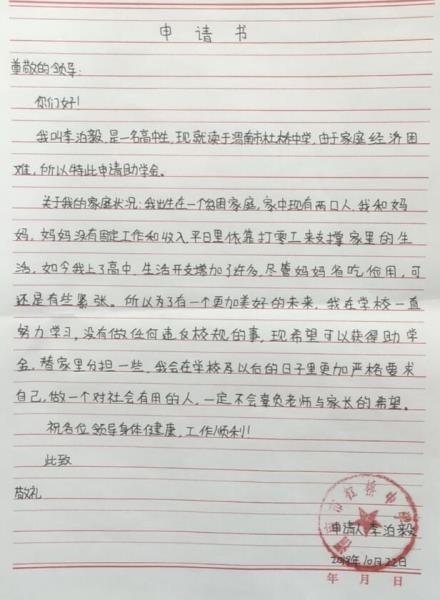 申请书
尊敬的领导:
你们好!
我叫李泊毅,是一名高中生,现就读于渭南市杜桥中学,由于家庭经济困
难,所以特此申请助学金。
关于我的家庭状况:我出生在一个贫困家庭,家中现有两口人,我和妈
妈,妈妈没有固定工作和收入,平日里依靠打零工来支撑家里的生
活,如今我上了高中,生活开支增加了许多,尽管妈妈省吃俭用,可
还是有些紧张。所以为了有一个更加美好的未来,我在学校一直
努力学习,没有做任何违反校规的事,现希望可以获得助学
金,替家里分担一些,我会在学校及以后的日子里更加严格要求
自己,做一个对社会有用的人,一定不会辜负老师与家长的希望。
祝各位领导身体健康,工作顺利!
此致
敬礼
申请人:李泊毅
10月22日
年 月 日